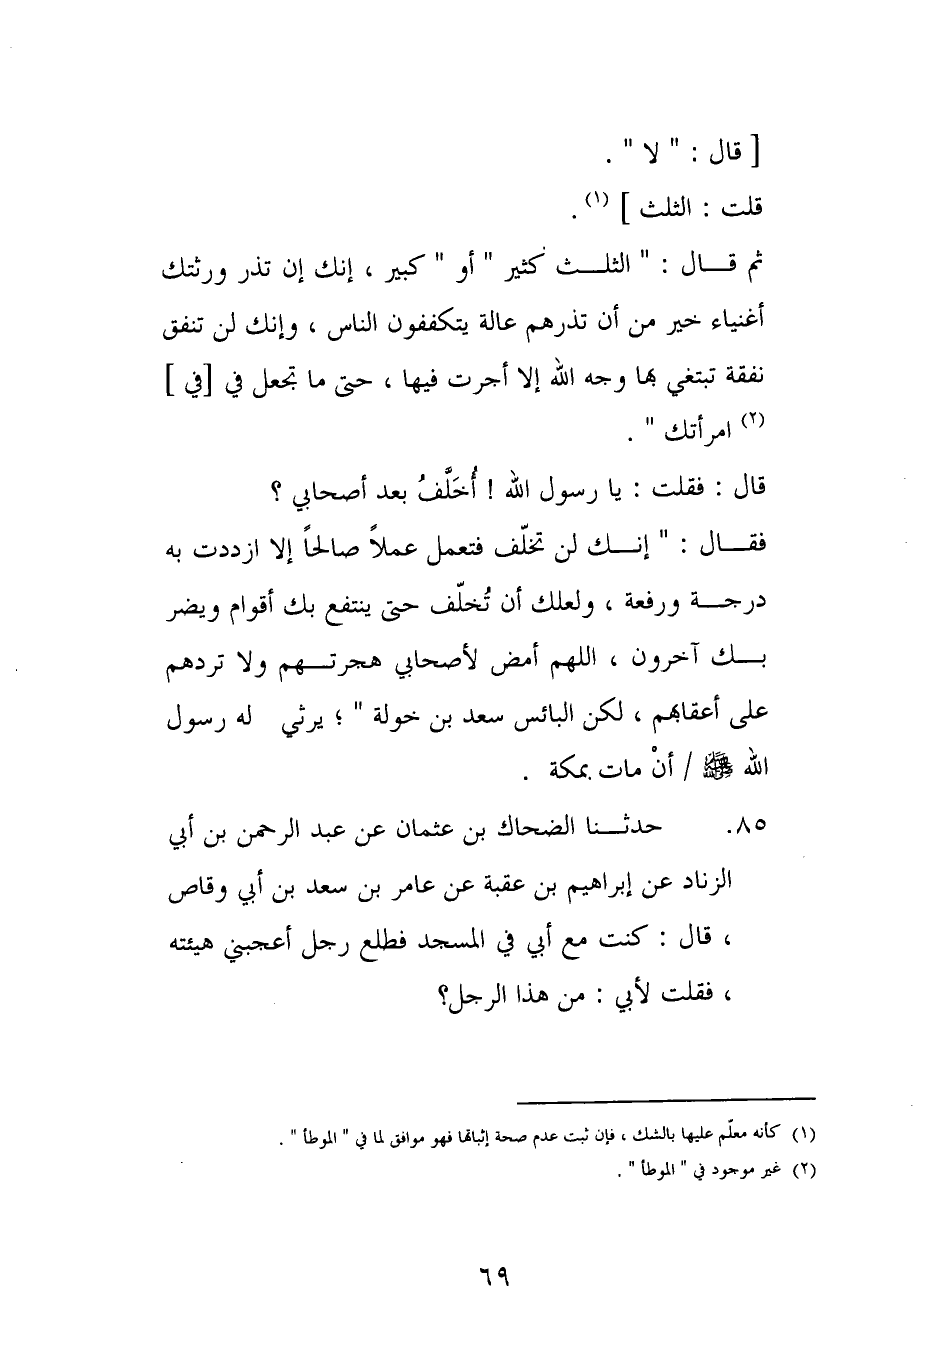 [ قال : " لا " .
قلت : الثلث ] (١) .
ثم قـــال : " الثلـــث كثير " أو " كبير ، إنك إن تذر ورثتك
أغنياء خير من أن تذرهم عالة يتكففون الناس ، وإنك لن تنفق
نفقة تبتغي بها وجه الله إلا أجرت فيها ، حتى ما تجعل في [في ]
(٢) امرأتك " .
قال : فقلت : يا رسول الله ! أُخَلَّفُ بعد أصحابي ؟
فقـــال : " إنـــك لن تخلّف فتعمل عملاً صالحاً إلا ازددت به
درجـــة ورفعة ، ولعلك أن تُخلّف حتى ينتفع بك أقوام ويضر
بـــك آخرون ، اللهم أمض لأصحابي هجرتـــهم ولا تردهم
على أعقابهم ، لكن البائس سعد بن خولة " ؛ يرثي له رسول
الله ﷺ / أنْ مات بمكة .
٨٥. حدثـــنا الضحاك بن عثمان عن عبد الرحمن بن أبي
الزناد عن إبراهيم بن عقبة عن عامر بن سعد بن أبي وقاص
، قال : كنت مع أبي في المسجد فطلع رجل أعجبني هيئته
، فقلت لأبي : من هذا الرجل؟
(١) كأنه معلّم عليها بالشك ، فإن ثبت عدم صحة إثباتها فهو موافق لما في " الموطأ " .
(٢) غير موجود في " الموطأ " .
٦٩